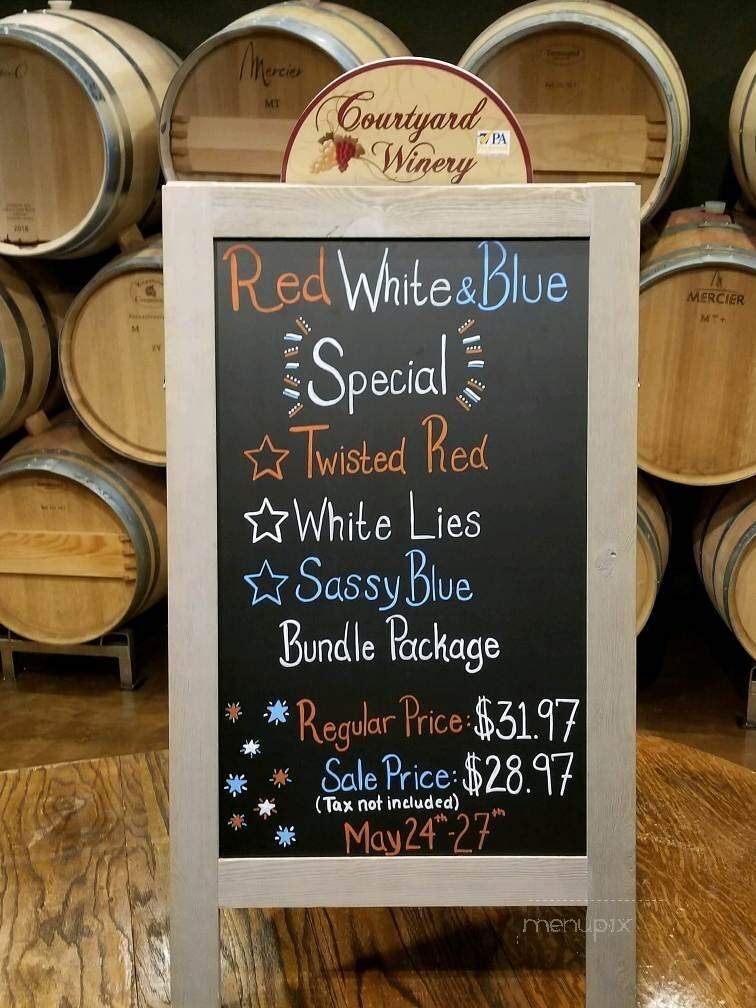 Mercier
MT
Courtyard
Winery
PA
2018
MERCIER
MT+
Red White & Blue
Special
Twisted Red
White Lies
Sassy Blue
Bundle Package
Regular Price: $31.97
Sale Price: $28.97
(Tax not included)
May 24th-27th
menupix